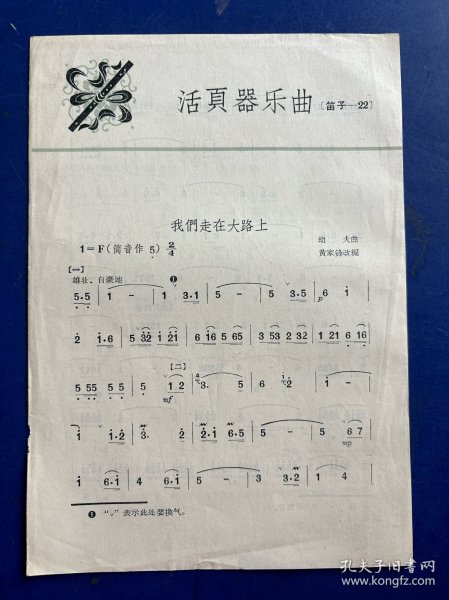 活頁器乐曲〔笛子—22〕
我們走在大路上
1=F(筒音作5) 2/4
劫夫曲
黃家鏘改編
[一]
雄壮、自豪地
❶
5·5 | 1 - | 1 3·1 | 5 - | 5 3·5 | 6 1 |
p
2 1·6 | 5 32 1 21 | 6 16 5 65 | 3 53 2 32 | 1 21 6 16 |
[二]
5 55 5 5 | 5 1 2 | 3· 5 | 6 2 | 1 - |
mf
1 1·2 | 3· 2 | 2·1 6·5 | 5 - | 5 6 7 |
mp
1 6·1 | 4 6·1 | 5 - | 3 3·2 | 1 4 |
❶ “ᵥ”表示此处要换气。
孔夫子旧书网
www.kongfz.com